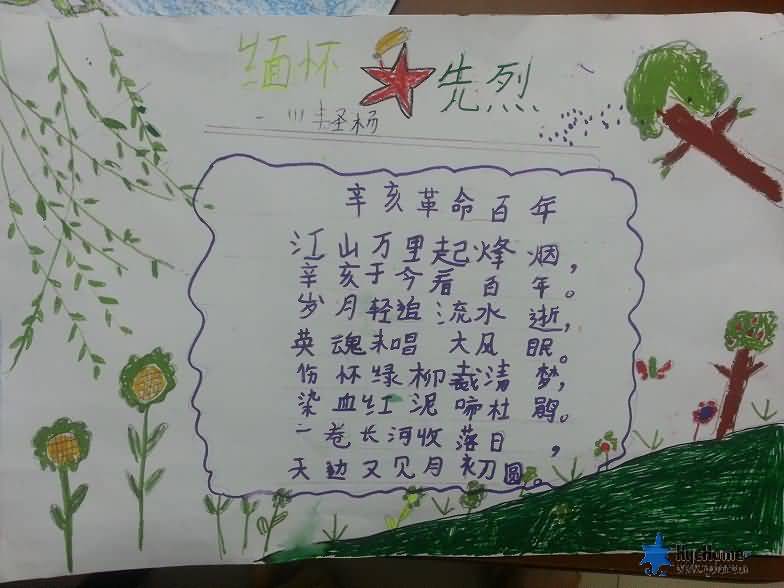 缅怀先烈
一 川 主圣杨
辛亥革命百年
江山万里起烽烟,
辛亥于今看百年。
岁月轻追流水逝,
英魂未唱大风眠。
伤怀绿柳裁清梦,
染血红泥啼杜鹃。
一卷长河收落日,
天边又见月初圆。
HyeHome